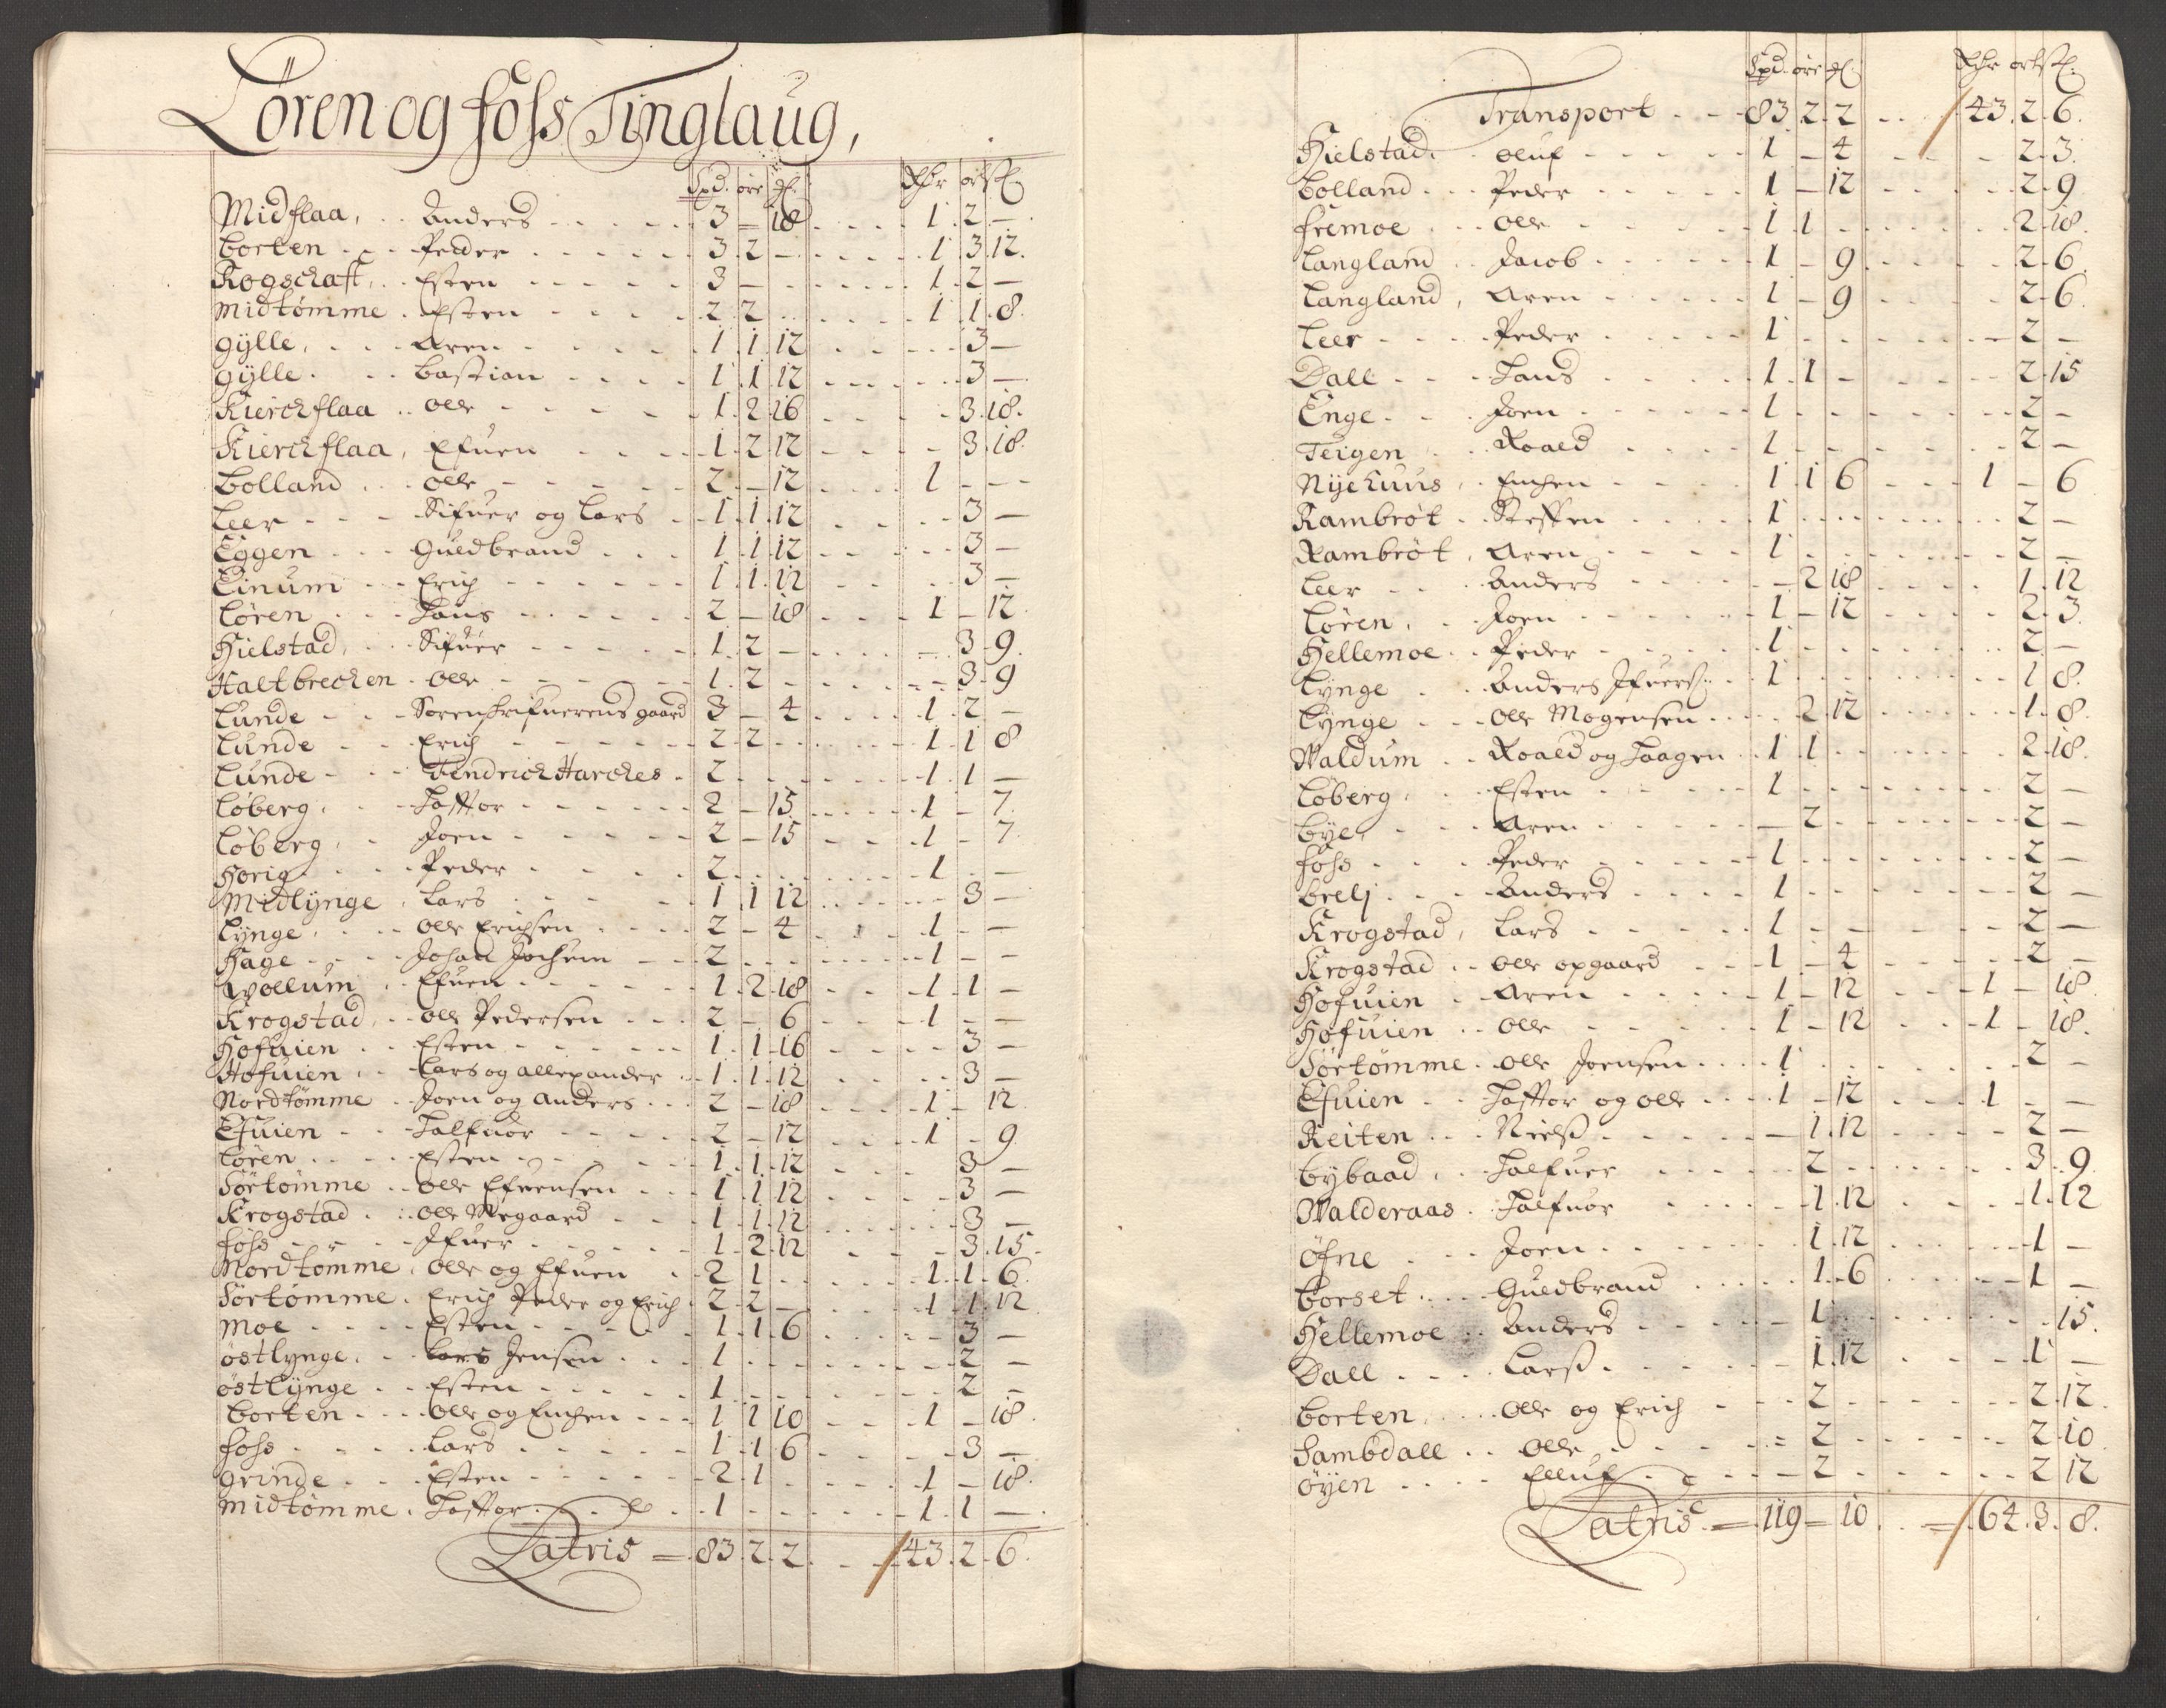 Løren og foss Tinglaug,
Spd. øre ₰. Rdr ort ß
Midflaa, Anders 3 — 18 1 2 —
Borten Peder 3 2 — 1 3 12.
Rogschaft, Esten 3 — 1 2 —
Midtømme Esten 2 2 1 1 8.
gylle, Aren 1 1 12 3 —
gylle Bastian 1 1 12 3 —
Kierchflaa Olle 1 2 16 3 18.
Kierchflaa, Efuen 1 2 12 3 18.
Bolland Olle 2 — 12 1 — —
Leer Sifuer og Lars 1 1 12 3 —
Eggen Guldbrand 1 1 12 3 —
Linum Erich 1 1 12 3 —
Løren Hans 2 — 18 1 — 12
Hielstad, Sifuer 1 2 — 3 9.
Haltbrechen Olle 1 2 3 9
Lunde Sorenskrifuerens gaard 3 — 4 1 2 —
Lunde Erich 2 2 1 1 8
Lunde Hendrich Harckes 2 1 1 —
Løberg, Haftor 2 — 15 1 — 7.
Løberg, Joen 2 — 15 1 — 7
Horig Peder 2 1 —
Midlynge, Lars 1 1 12 3 —
Lynge, Olle Erichsen 2 — 4 1 — —
Hage Johan Jochum 2 1 — —
Wollum Efuen 1 2 18 1 1 —
Krogstad, Olle Pedersen 2 — 6 1 — —
Hofuien Esten 1 1 16 3 —
Hofuien Lars og allexander 1 1 12 3 —
Nordtømme Joen og Anders 2 — 18 1 — 12
Efuien Halfuor 2 — 12 1 — 9
Løren Esten 1 1 12 3 —
Sørtømme Olle Efuensen 1 1 12 3 —
Krogstad Olle Negaard 1 1 12 3 —
foss Ifuer 1 2 12 3 15
Nordtomme, Olle og Efuen 2 1 1 1 6
Sørtomme Erich Peder og Erich 2 2 — 1 1 12
Moe Esten 1 1 6 3 —
østlynge Lars Jensen 1 2 —
østlynge Esten 1 2 —
Borten Olle og Encken 1 1 10 1 — 18.
foss Lars 1 1 6 3 —
grinde Esten 2 1 1 — 18.
Midtømme Haftor 1 1 1 —
Latris = 83 2 2 43 2 6.
Spd. øre ₰. Rdr ort ß.
Transport 83 2 2 43 2 6.
Hielstad Oluf 1 — 4 2 3.
Bolland Peder 1 — 12 2 9
fremoe Olle 1 1 2 18.
Langland Jacob 1 — 9 2 6
Langland, Aren 1 — 9 2 6
Leer Peder 1 2 —
Dall Hans 1 1 — 2 15
Enge Joen 1 2 —
Teigen Roald 1 2 —
Nijehuus Encken 1 1 6 1 — 6
Rambrøt Steffen 1 2 —
Rambrøt, Aren 1 2 —
Leer Anders — 2 18 1 12
Løren, Joen 1 — 12 2 3.
Hellemoe Peder 1 2 —
Lynge Anders Ifuers. 1 1 8.
Lynge Olle Mogensen 2 12 1 8
Waldum Roald og Haagen 1 1 2 18.
Løberg, Esten 1 2 —
bye, Aren — 2 2 —
foss Peder 1 2 —
brelj Anders 1 2 —
Krogstad, Lars 1 2 —
Krogstad Olle opgaard 1 — 4 2 —
Hofuien Aren 1 — 12 1 — 18
Hofuien Olle 1 — 12 1 — 18.
Sørtømme Olle Joensen 1 2 —
Efuien Haftor og Olle 1 — 12 1 — —
Reiten Nielß — 1 12 2 —
bybaad, Halfuer 2 3 9
Walderaas Halfuor 1 12 1 12
Øfne Joen 1 12 1 —
borset Guldbrand 1 6 1 —
Hellemoe Anders — 1 15.
Dall Larß — 1 12 1 —
borten, Olle og Erich 2 2 12.
Sambdall Olle = 2 2 10
øyen Elluf — 2 2 12
Latris = 119 — 10 = 64 3 8.